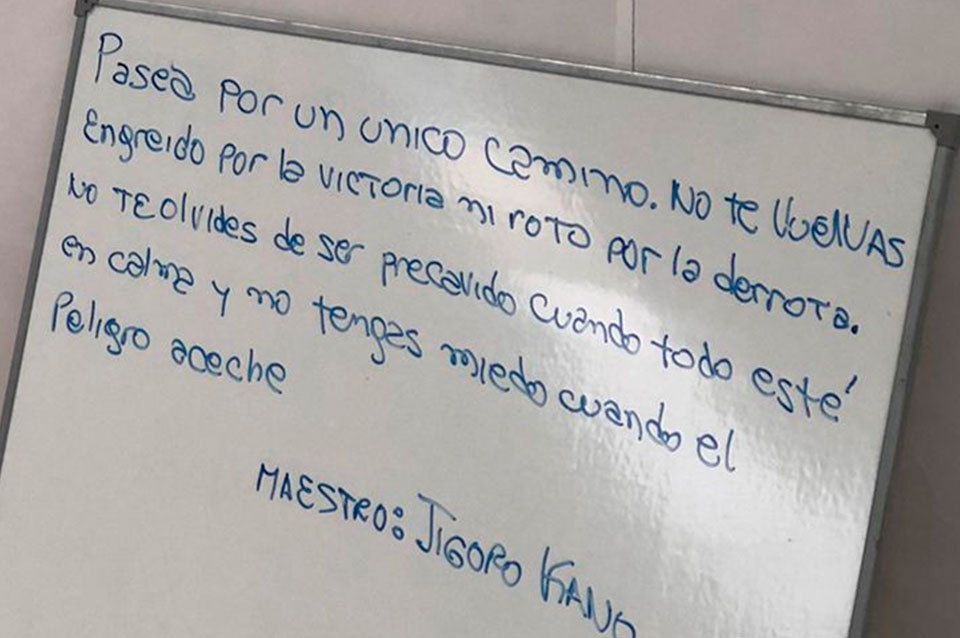 Pasea por un unico camino. No te vuelvas
Engreido por la victoria ni roto por la derrota.
No te olvides de ser precavido cuando todo esté
en calma y no tengas miedo cuando el
Peligro aceche
MAESTRO: JIGORO KANO